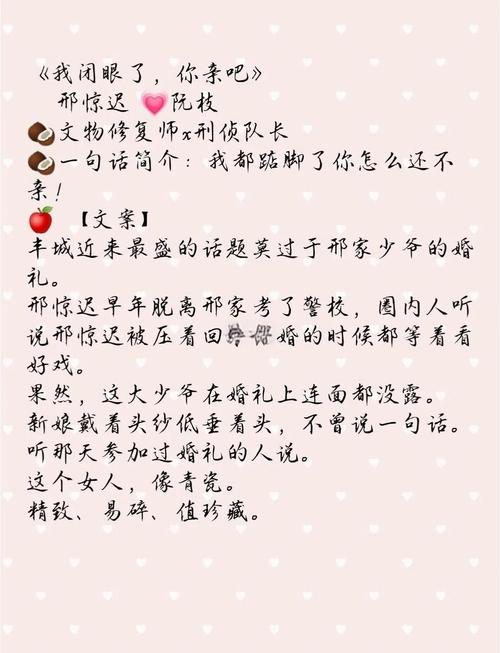 《我闭眼了，你亲吧》
邢惊迟💗阮枝
🥥文物修复师x刑侦队长
🥥一句话简介：我都踮脚了你怎么还不
亲！
🍎【文案】
丰城近来最盛的话题莫过于邢家少爷的婚
礼。
邢惊迟早年脱离邢家考了警校，圈内人听
说邢惊迟被压着回婚的时候都等着看
好戏。
果然，这大少爷在婚礼上连面都没露。
新娘戴着头纱低垂着头，不曾说一句话。
听那天参加过婚礼的人说。
这个女人，像青瓷。
精致、易碎、值珍藏。